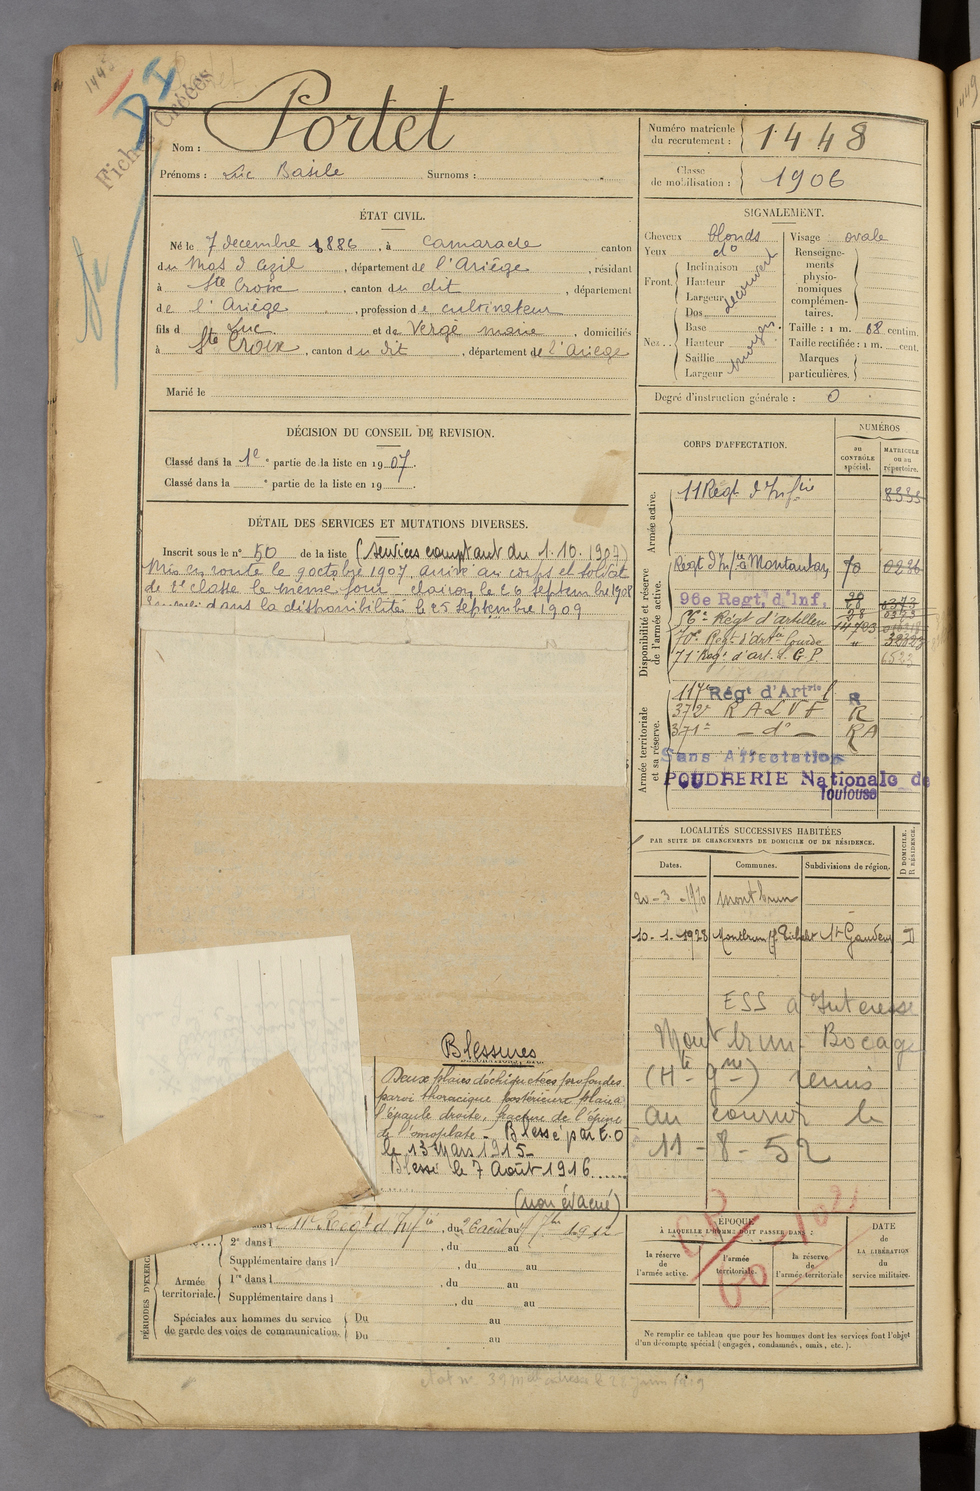 1448
DI
Fiches Créées
Nom : Portet
Prénoms : Luc Basile Surnoms :
Numéro matricule du recrutement : 1448
Classe de mobilisation : 1906
ÉTAT CIVIL.
Né le 7 decembre 1886, à Camarade canton
du Mas d'Azil, département de l'Ariège, résidant
à Ste Croix, canton du dit, département
de l'Ariège, profession de cultivateur
fils de Luc et de Vergé Marie, domiciliés
à Ste Croix, canton du dit, département de l'Ariège
Marié le
SIGNALEMENT.
Cheveux blonds
Yeux do
Front. Inclinaison Hauteur Largeur découvert
Nez. Dos Base Hauteur Saillie Largeur moyen
Visage ovale
Renseignements physionomiques complémentaires.
Taille : 1 m. 68 centim.
Taille rectifiée : 1 m. cent.
Marques particulières.
Degré d'instruction générale : 0
DÉCISION DU CONSEIL DE REVISION.
Classé dans la 1e partie de la liste en 1907.
Classé dans la e partie de la liste en 19
DÉTAIL DES SERVICES ET MUTATIONS DIVERSES.
Inscrit sous le n° 50 de la liste (services comptant du 1.10.1907)
Mis en route le 9 octobre 1907, arrivé au corps et soldat
de 2e classe le même jour, clairon le 26 septembre 1908
dans la disponibilité le 25 septembre 1909
Blessures
Deux plaies déchiquetées profondes
paroi thoracique postérieure plaie à
l'épaule droite, fracture de l'épine
de l'omoplate - Blessé par E.O
le 13 Mars 1915 -
Blessé le 7 Août 1916
(non évacué)
CORPS D'AFFECTATION.
NUMÉROS
au CONTRÔLE spécial.
MATRICULE ou au répertoire.
Armée active.
11 Régt d'Inftie 8335
Disponibilité et réserve de l'armée active.
Régt d'Inftie Montauban 70 0236
96e Regt. d'Inf.
56e Régt d'artillerie
70e Régt d'Arte lourde
71 Régt d'art. à G.P.
Armée territoriale et sa réserve.
117e Régt d'Artrie l R
372e RALVF R
371e - do - RA
Sans Affectation
POUDRERIE Nationale de Toulouse
LOCALITÉS SUCCESSIVES HABITÉES
PAR SUITE DE CHANGEMENTS DE DOMICILE OU DE RÉSIDENCE.
Dates. Communes. Subdivisions de région. D DOMICILE. R RÉSIDENCE.
20-3-1910 Montbrun
10-1-1923 Montbrun St Gaudens D
ESS à Interesse
Montbrun-Bocage
(Hte Gne) remis
au courrier le
11-8-52
PÉRIODES D'EXERCICES
11e Régt d'Inftie, du 26 août au 7 7bre 1912
2e dans l , du au
Supplémentaire dans l , du au
Armée territoriale. 1re dans l , du au
Supplémentaire dans l , du au
Spéciales aux hommes du service de garde des voies de communication. Du au
Du au
ÉPOQUE
À LAQUELLE L'HOMME DOIT PASSER DANS :
la réserve de l'armée active.
l'armée territoriale.
la réserve de l'armée territoriale
DATE de LA LIBÉRATION du service militaire.
Ne remplir ce tableau que pour les hommes dont les services font l'objet
d'un décompte spécial (engagés, condamnés, omis, etc.).